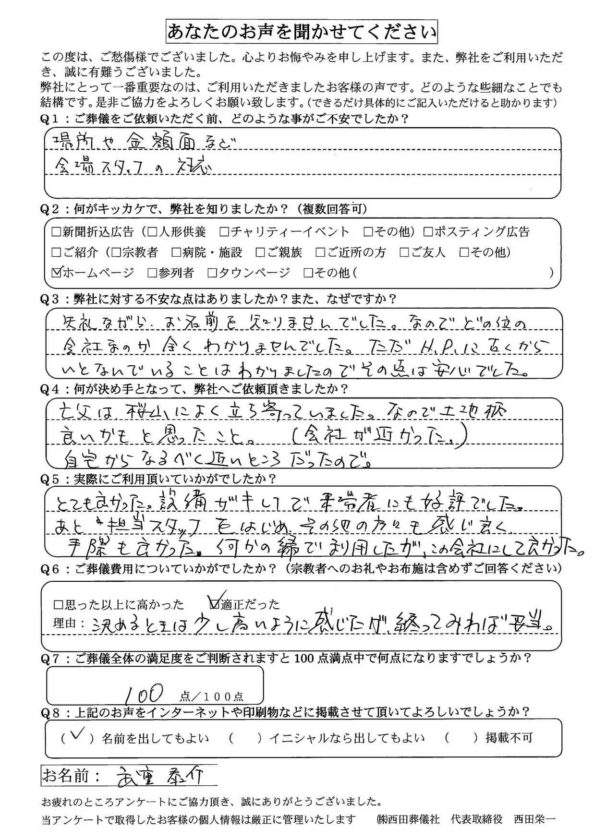 あなたのお声を聞かせてください
この度は、ご愁傷様でございました。心よりお悔やみを申し上げます。また、弊社をご利用いただ
き、誠に有難うございました。
弊社にとって一番重要なのは、ご利用いただきましたお客様の声です。どのような些細なことでも
結構です。是非ご協力をよろしくお願い致します。（できるだけ具体的にご記入いただけると助かります）
Q1：ご葬儀をご依頼いただく前、どのような事がご不安でしたか？
場所や金額面など
会場スタッフの対応
Q2：何がキッカケで、弊社を知りましたか？（複数回答可）
□新聞折込広告（□人形供養 □チャリティーイベント □その他）□ポスティング広告
□ご紹介（□宗教者 □病院・施設 □ご親族 □ご近所の方 □ご友人 □その他）
☑ホームページ □参列者 □タウンページ □その他（ ）
Q3：弊社に対する不安な点はありましたか？また、なぜですか？
失礼ながら、お名前を知りませんでした。なのでどの位の
会社なのか全くわかりませんでした。ただH.P.に古くから
いとなんでいることはわかりましたのでその点は安心でした。
Q4：何が決め手となって、弊社へご依頼頂きましたか？
亡父は桜山によく立ち寄っていました。なので土地柄
良いかもと思ったこと。（会社が近かった。）
自宅からなるべく近いところだったので。
Q5：実際にご利用頂いていかがでしたか？
とても良かった。設備がキレイで来席者にも好評でした。
あと、担当スタッフをはじめ、その他の方々も感じ良く、
手際も良かった。何かの縁で利用したが、この会社にして良かった。
Q6：ご葬儀費用についていかがでしたか？（宗教者へのお礼やお布施は含めずご回答ください）
□思った以上に高かった ☑適正だった
理由：決めるときは少し高いように感じたが、終ってみれば妥当。
Q7：ご葬儀全体の満足度をご判断されますと100点満点中で何点になりますでしょうか？
100 点／100点
Q8：上記のお声をインターネットや印刷物などに掲載させて頂いてよろしいでしょうか？
（✓）名前を出してもよい （ ）イニシャルなら出してもよい （ ）掲載不可
お名前：
お疲れのところアンケートにご協力頂き、誠にありがとうございました。
当アンケートで取得したお客様の個人情報は厳正に管理いたします ㈱西田葬儀社 代表取締役 西田栄一